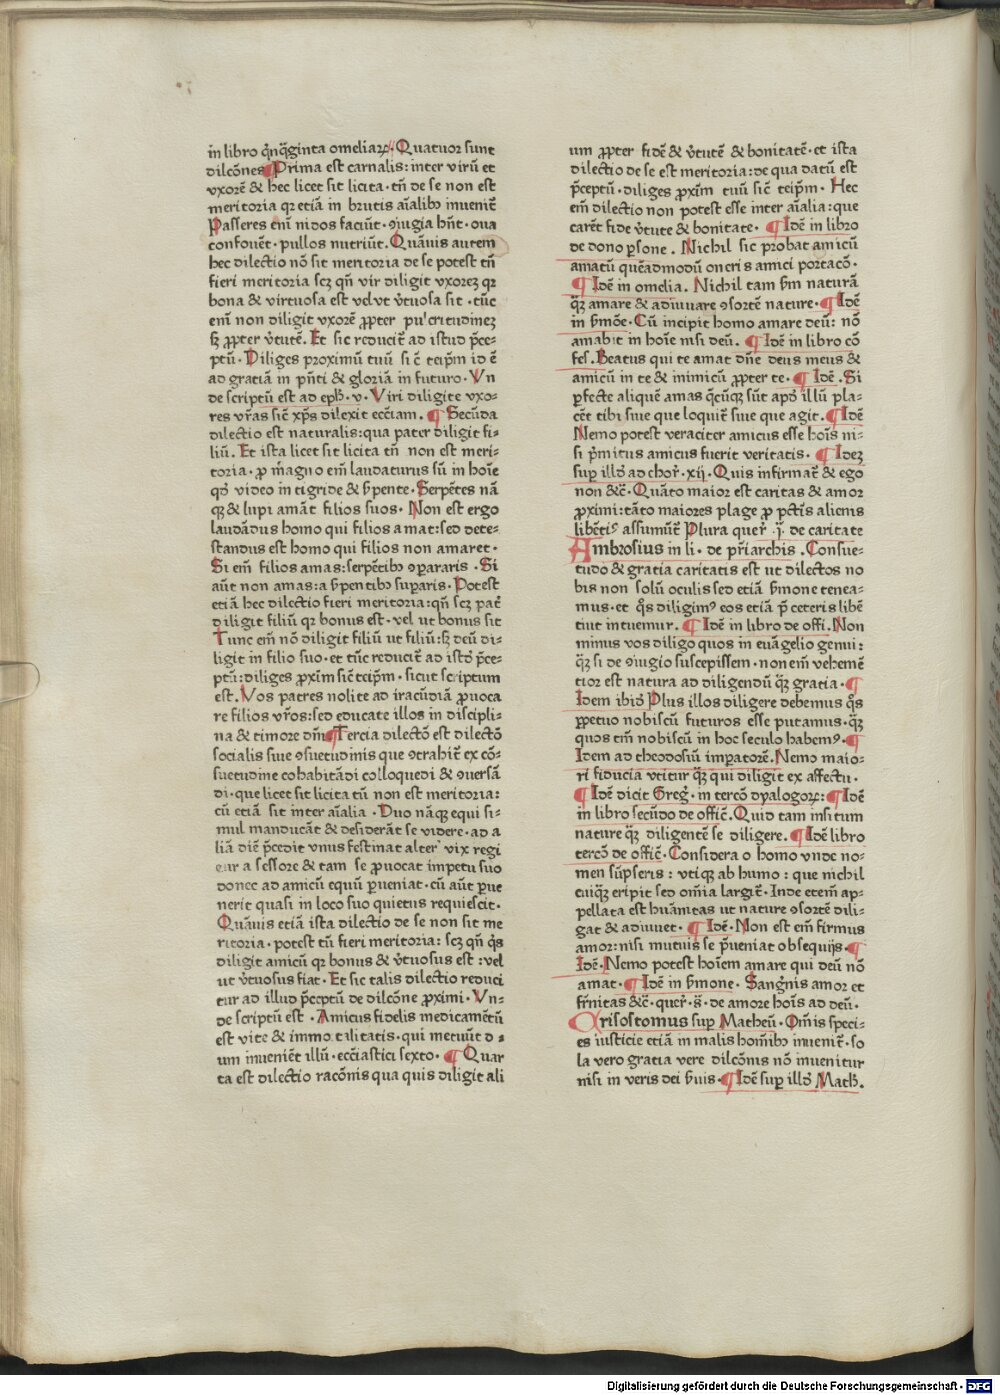 in libro q̄nq̄ginta omeliaꝝ. Quatuor sunt
dilcōnes ¶ Prima est carnalis: inter virū et
vxorē & hec licet sit licita· tn̄ de se non est
meritoria qr etiā in brutis aīalibꝰ inuenit̄
Passeres enī nidos faciūt· ꝯiugia hn̄t· oua
confouēt· pullos nutriūt. Quāuis autem
hec dilectio nō sit meritoria de se potest tn̄
fieri meritoria scꝫ qn̄ vir diligit vxoreꝫ qr
bona & virtuosa est vel vt v̄tuosa sit · tūc
enī non diligit vxorē ꝓpter pulcritudineꝫ
sꝫ ꝓpter v̄tutē. Et sic reducit̄ ad istud p̄ce-
ptū· Diliges proximū tuū sic̄ teip̄m id ē
ad gratiā in pn̄ti & gloriā in futuro· Vn
de scriptū est ad eph̄· v· Viri diligite vxo-
res vr̄as sic̄ xp̄s dilexit ecc̄iam. ¶ Secūda
dilectio est naturalis: qua pater diligit fi-
liū. Et ista licet sit licita tn̄ non est meri-
toria· ꝓ magno em̄ laudaturus sū in hoīe
qd̄ video in tigride & ẜpente· Serpētes nā
qꝫ & lupi amāt filios suos· Non est ergo
laudādus homo qui filios amat: sed dete-
standus est homo qui filios non amaret·
Si em̄ filios amas: serpētibꝰ ꝯpararis· Si
aūt non amas: a ẜpentibꝰ suꝑaris· Potest
etiā hec dilectio fieri meritoria: qn̄ scꝫ pat̄
diligit filiū qr bonus est· vel ut bonus sit
Tunc em̄ nō diligit filiū ut filiū: sꝫ deū di-
ligit in filio suo· et tūc reducit̄ ad istd̄ p̄ce-
ptū: diliges ꝓxim̄ sic̄ teip̄m· sicut scriptum
est. Vos patres nolite ad iracūdiā ꝓuoca
re filios vr̄os: sed educate illos in discipli-
na & timore dn̄i ¶ Tercia dilectō est dilectō
socialis siue ꝯsuetudinis que ꝯtrahit̄ ex cō-
suetudine cohabitādi colloquēdi & ꝯuersā
di· que licet sit licita tn̄ non est meritoria:
cū etiā sit inter aīalia· Duo nāqꝫ equi si-
mul manducāt & desiderāt se videre· ad a
liā diē p̄cedit vnus festinat alter vix regi
tur a sessore & tam se ꝓuocat impetu suo
donec ad amicū equū ꝑueniat· cū aūt ꝑue
nerit quasi in loco suo quietus requiescit·
Quāuis etiā ista dilectio de se non sit me
ritoria· potest tn̄ fieri meritoria: scꝫ qn̄ qͥs
diligit amicū qr bonus & v̄tuosus est: vel
ut v̄tuosus fiat· Et sic talis dilectio reduci
tur ad illud p̄ceptū de dilcōne ꝓximi· Vn-
de scriptū est· Amicus fidelis medicamētū
est vite & immortalitatis· qui metuūt d-
um inueniēt illū· ecc̄iastici sexto· ¶ Quar
ta est dilectio racōnis qua quis diligit ali
um ꝓpter fidē & v̄tutē & bonitatē· et ista
dilectio de se est meritoria: de qua datū est
p̄ceptū· diliges ꝓxim̄ tuū sic̄ teip̄m· Hec
em̄ dilectio non potest esse inter aīalia: que
carēt fide v̄tute & bonitate· ¶ Idē in libro
de dono ꝑsone. Nichil sic probat amicū
amatū quēadmodū oneris amici portacō·
¶ Idē in omelia. Nichil tam ẜm naturā
qꝫ̄ amare & adiuuare ꝯsortē nature· ¶ Idē
in ẜmōe· Cū incipit homo amare deū: nō
amabit in hoīe nisi deū. ¶ Idē in libro cō
fes̄. Beatus qui te amat dn̄e deus meus &
amicū in te & inimicū ꝓpter te· ¶ Idē. Si
ꝑfecte aliquē amas qc̄ūqꝫ sūt apd̄ illū pla-
cēt tibi siue que loquit̄ siue que agit. ¶ Idē
Nemo potest veraciter amicus esse hoīs ni-
si p̄mitus amicus fuerit veritatis. ¶ Ideꝫ
suꝑ illd̄ ad chor̄· xij. Quis infirmat̄ & ego
non &c̄· Quāto maior est caritas & amor
ꝓximi: tāto maiores plage ꝓ pctīs alienis
libētiꝰ assumūt̄ Plura quer̄ ·j· de caritate
Ambrosius in li· de pr̄iarchis. Consue-
tudo & gratia caritatis est ut dilectos no
bis non solū oculis sed etiā ẜmone tenea-
mus· et qͦs diligimꝰ eos etiā p̄ ceteris libē
tiut intuemur. ¶ Idē in libro de offi. Non
minus vos diligo quos in euāgelio genui:
qꝫ̄ si de ꝯiugio suscepissem· non em̄ vehemē
tior est natura ad diligendū qꝫ̄ gratia· ¶
Idem ibid̄ Plus illos diligere debemus qͦs
ꝑpetuo nobiscū futuros esse putamus· qꝫ̄
quos tm̄ nobiscū in hoc seculo habemꝰ· ¶
Idem ad theodosiū imꝑatorē. Nemo maio-
ri fiducia vtitur qꝫ̄ qui diligit ex affectu·
¶ Idē dicit Greḡ· in tercō dyalogoꝝ: ¶ Idē
in libro secūdo de offic̄. Quid tam insitum
nature qꝫ̄ diligentē se diligere. ¶ Idē libro
tercō de offic̄· Considera o homo vnde no-
men sūpseris: vtiqꝫ ab humo: que nichil
cuiqꝫ eripit sed om̄ia largit̄· Inde etem̄ ap-
pellata est huānitas ut nature ꝯsortē dili-
gat & adiuuet· ¶ Idē· Non est em̄ firmus
amor: nisi mutuis se p̄ueniat obsequijs· ¶
Idē· Nemo potest hoīem amare qui deū nō
amat· ¶ Idē in ẜmone· Sangͥnis amor et
fr̄nitas &c̄· quer̄· s̄· de amore hoīs ad deū·
Crisostomus suꝑ Matheū· Om̄is speci-
es iusticie etiā in malis hoīibꝰ inuenit̄· so
la vero gratia vere dilcōnis nō inuenitur
nisi in veris dei ẜuis· ¶ Idē suꝑ illd̄ Math̄.
Digitalisierung gefördert durch die Deutsche Forschungsgemeinschaft - DFG